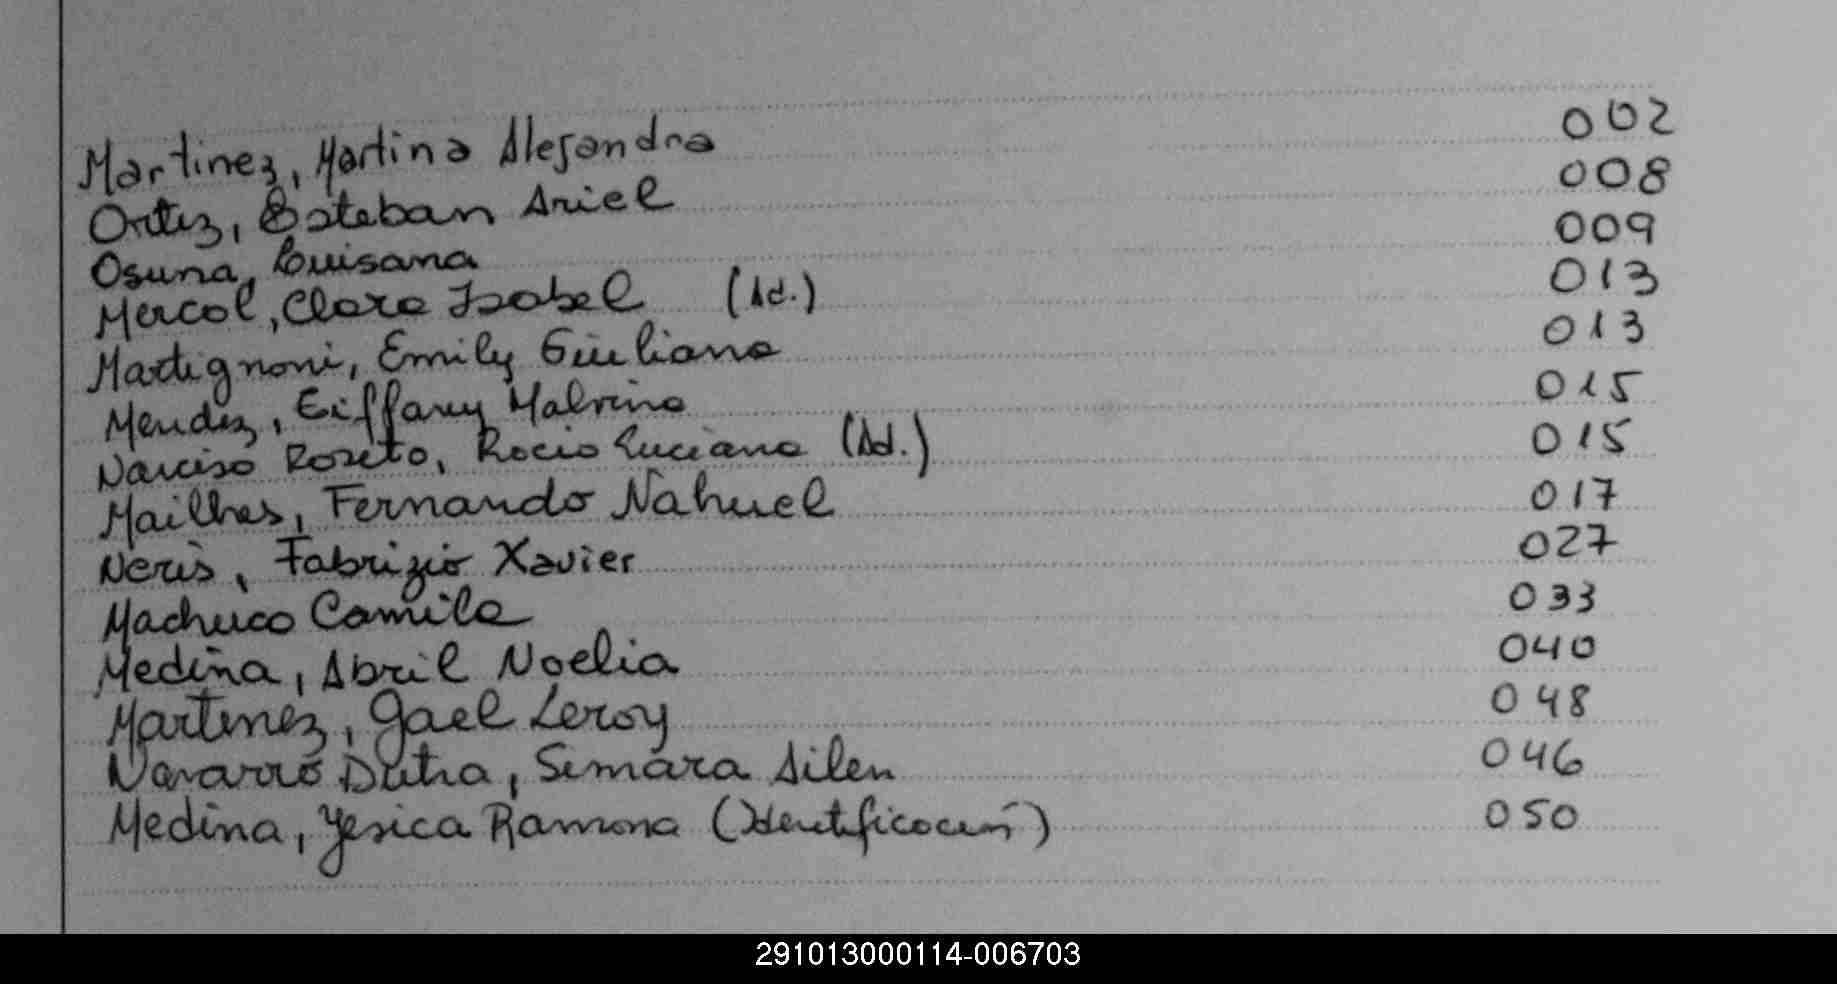 Martinez, Martina Alejandra 002
Ortiz, Esteban Ariel 008
Osuna, Luisana 009
Mercol, Clara Isabel (Ad.) 013
Martignoni, Emily Giuliana 013
Mendez, Eiffany Malvina 015
Narciso Roseto, Rocio Luciana (Ad.) 015
Mailhes, Fernando Nahuel 017
Neris, Fabrizio Xavier 027
Machuca Camila 033
Medina, Abril Noelia 040
Martinez, Gael Leroy 048
Navarro Dutra, Simara Ailen 046
Medina, Yesica Ramona (Identificación) 050
291013000114-006703